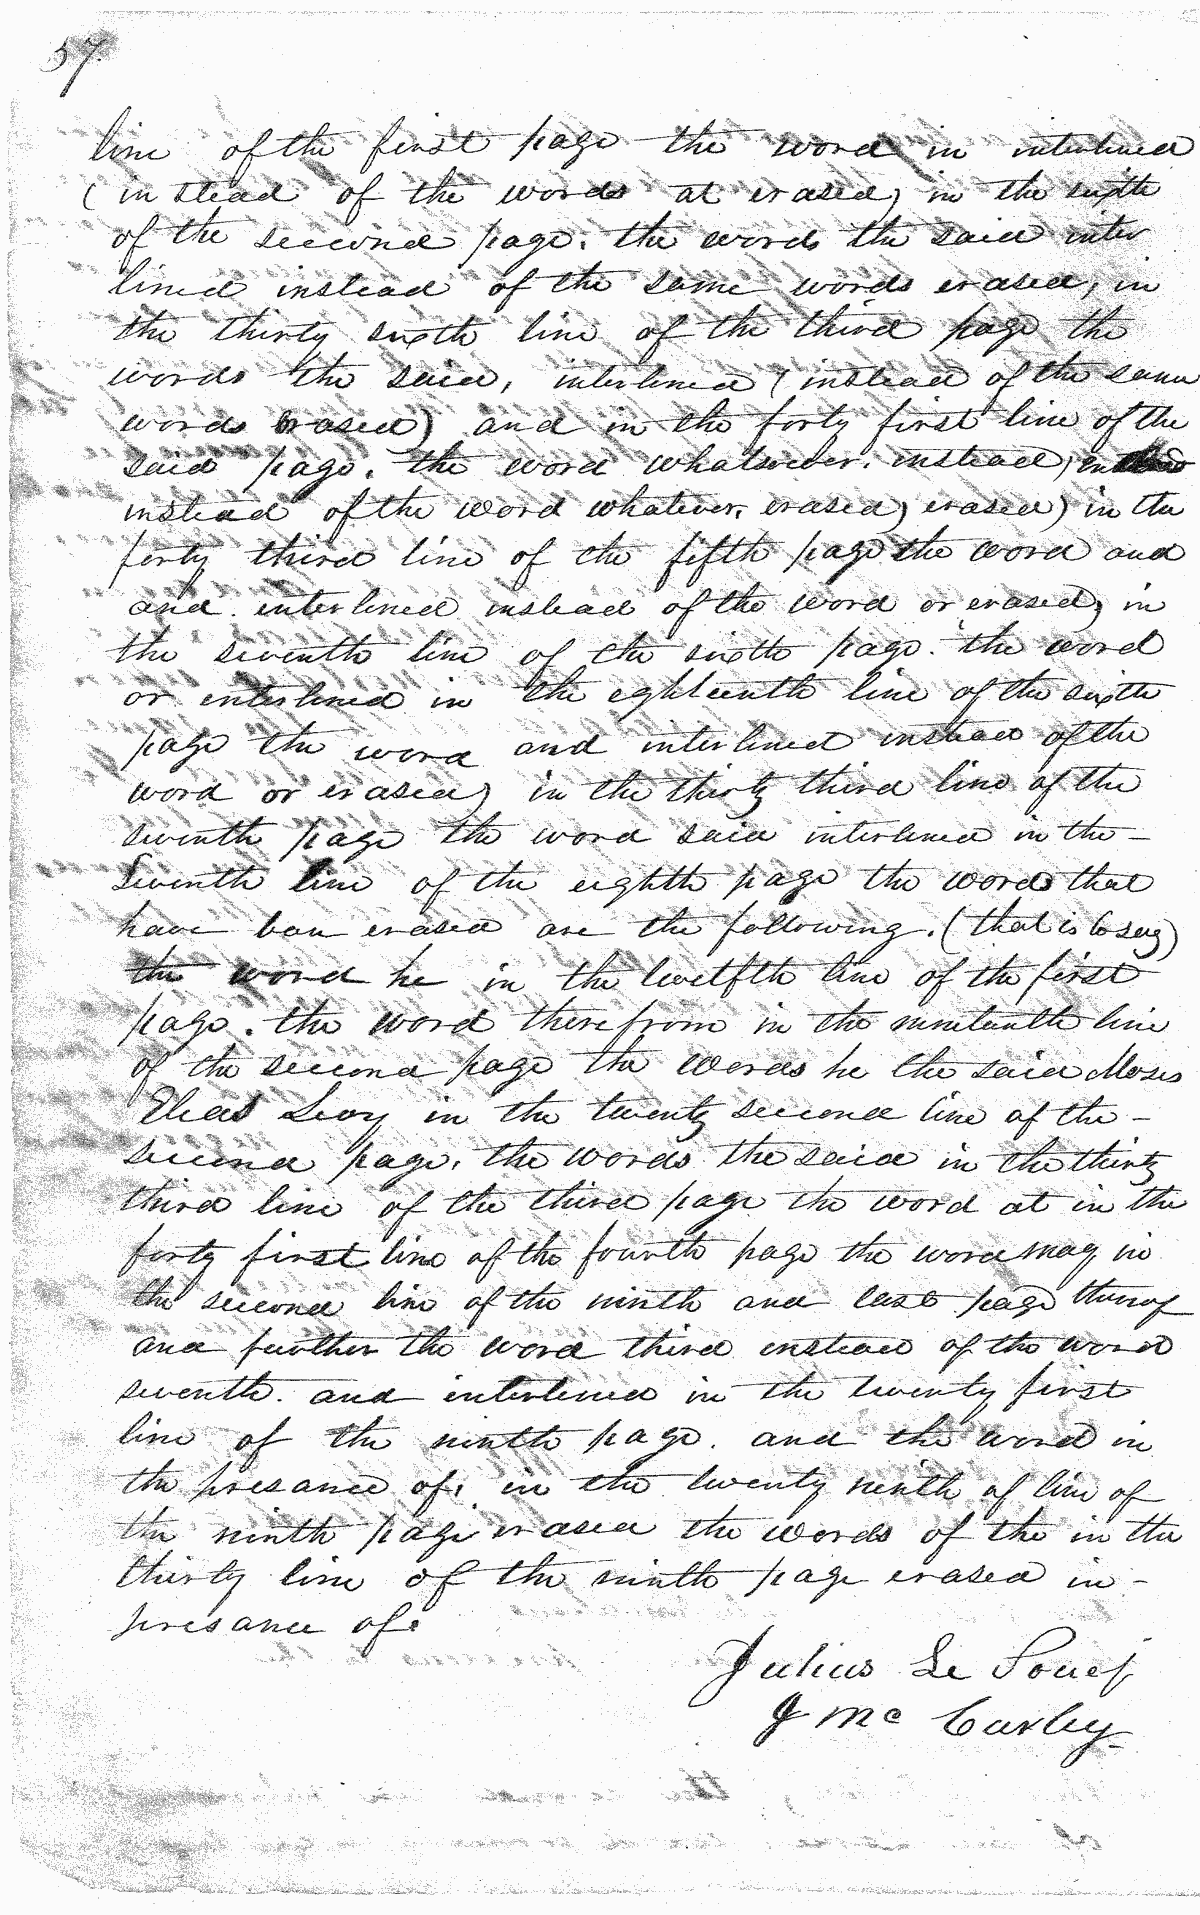 57.
line of the first page the word in interlined
(instead of the words at erased) in the sixth
of the second page. the words the said inter
lined instead of the same words erased, in
the thirty sixth line of the third page the
words the said, interlined (instead of the same
words erased) and in the forty first line of the
said page. the word whatsoever. instead,
instead of the word whatever, erased) erased) in the
forty third line of the fifth page the word and
and interlined instead of the word or erased, in
the seventh line of the sixth page. the word
or interlined in the eighteenth line of the sixth
page the word and interlined instead of the
word or erased) in the thirty third line of the
seventh page the word said interlined in the –
Seventh line of the eighth page the words that
have been erased are the following. (that is to say)
the word he in the twelfth line of the first
page. the word therefrom in the nineteenth line
of the second page the words he the said Moses
Elias Levy in the twenty second line of the –
second page, the words the said in the thirty
third line of the third page the word at in the
forty first line of the fourth page the word may in
the second line of the ninth and last page thereof
and further the word third instead of the word
seventh. and interlined in the twenty first
line of the ninth page. and the word in
the presance of, in the twenty ninth of line of
the ninth page erased the words of the in the
thirty line of the ninth page erased in –
presance of.
Julius Le Souef
J Mc Curley